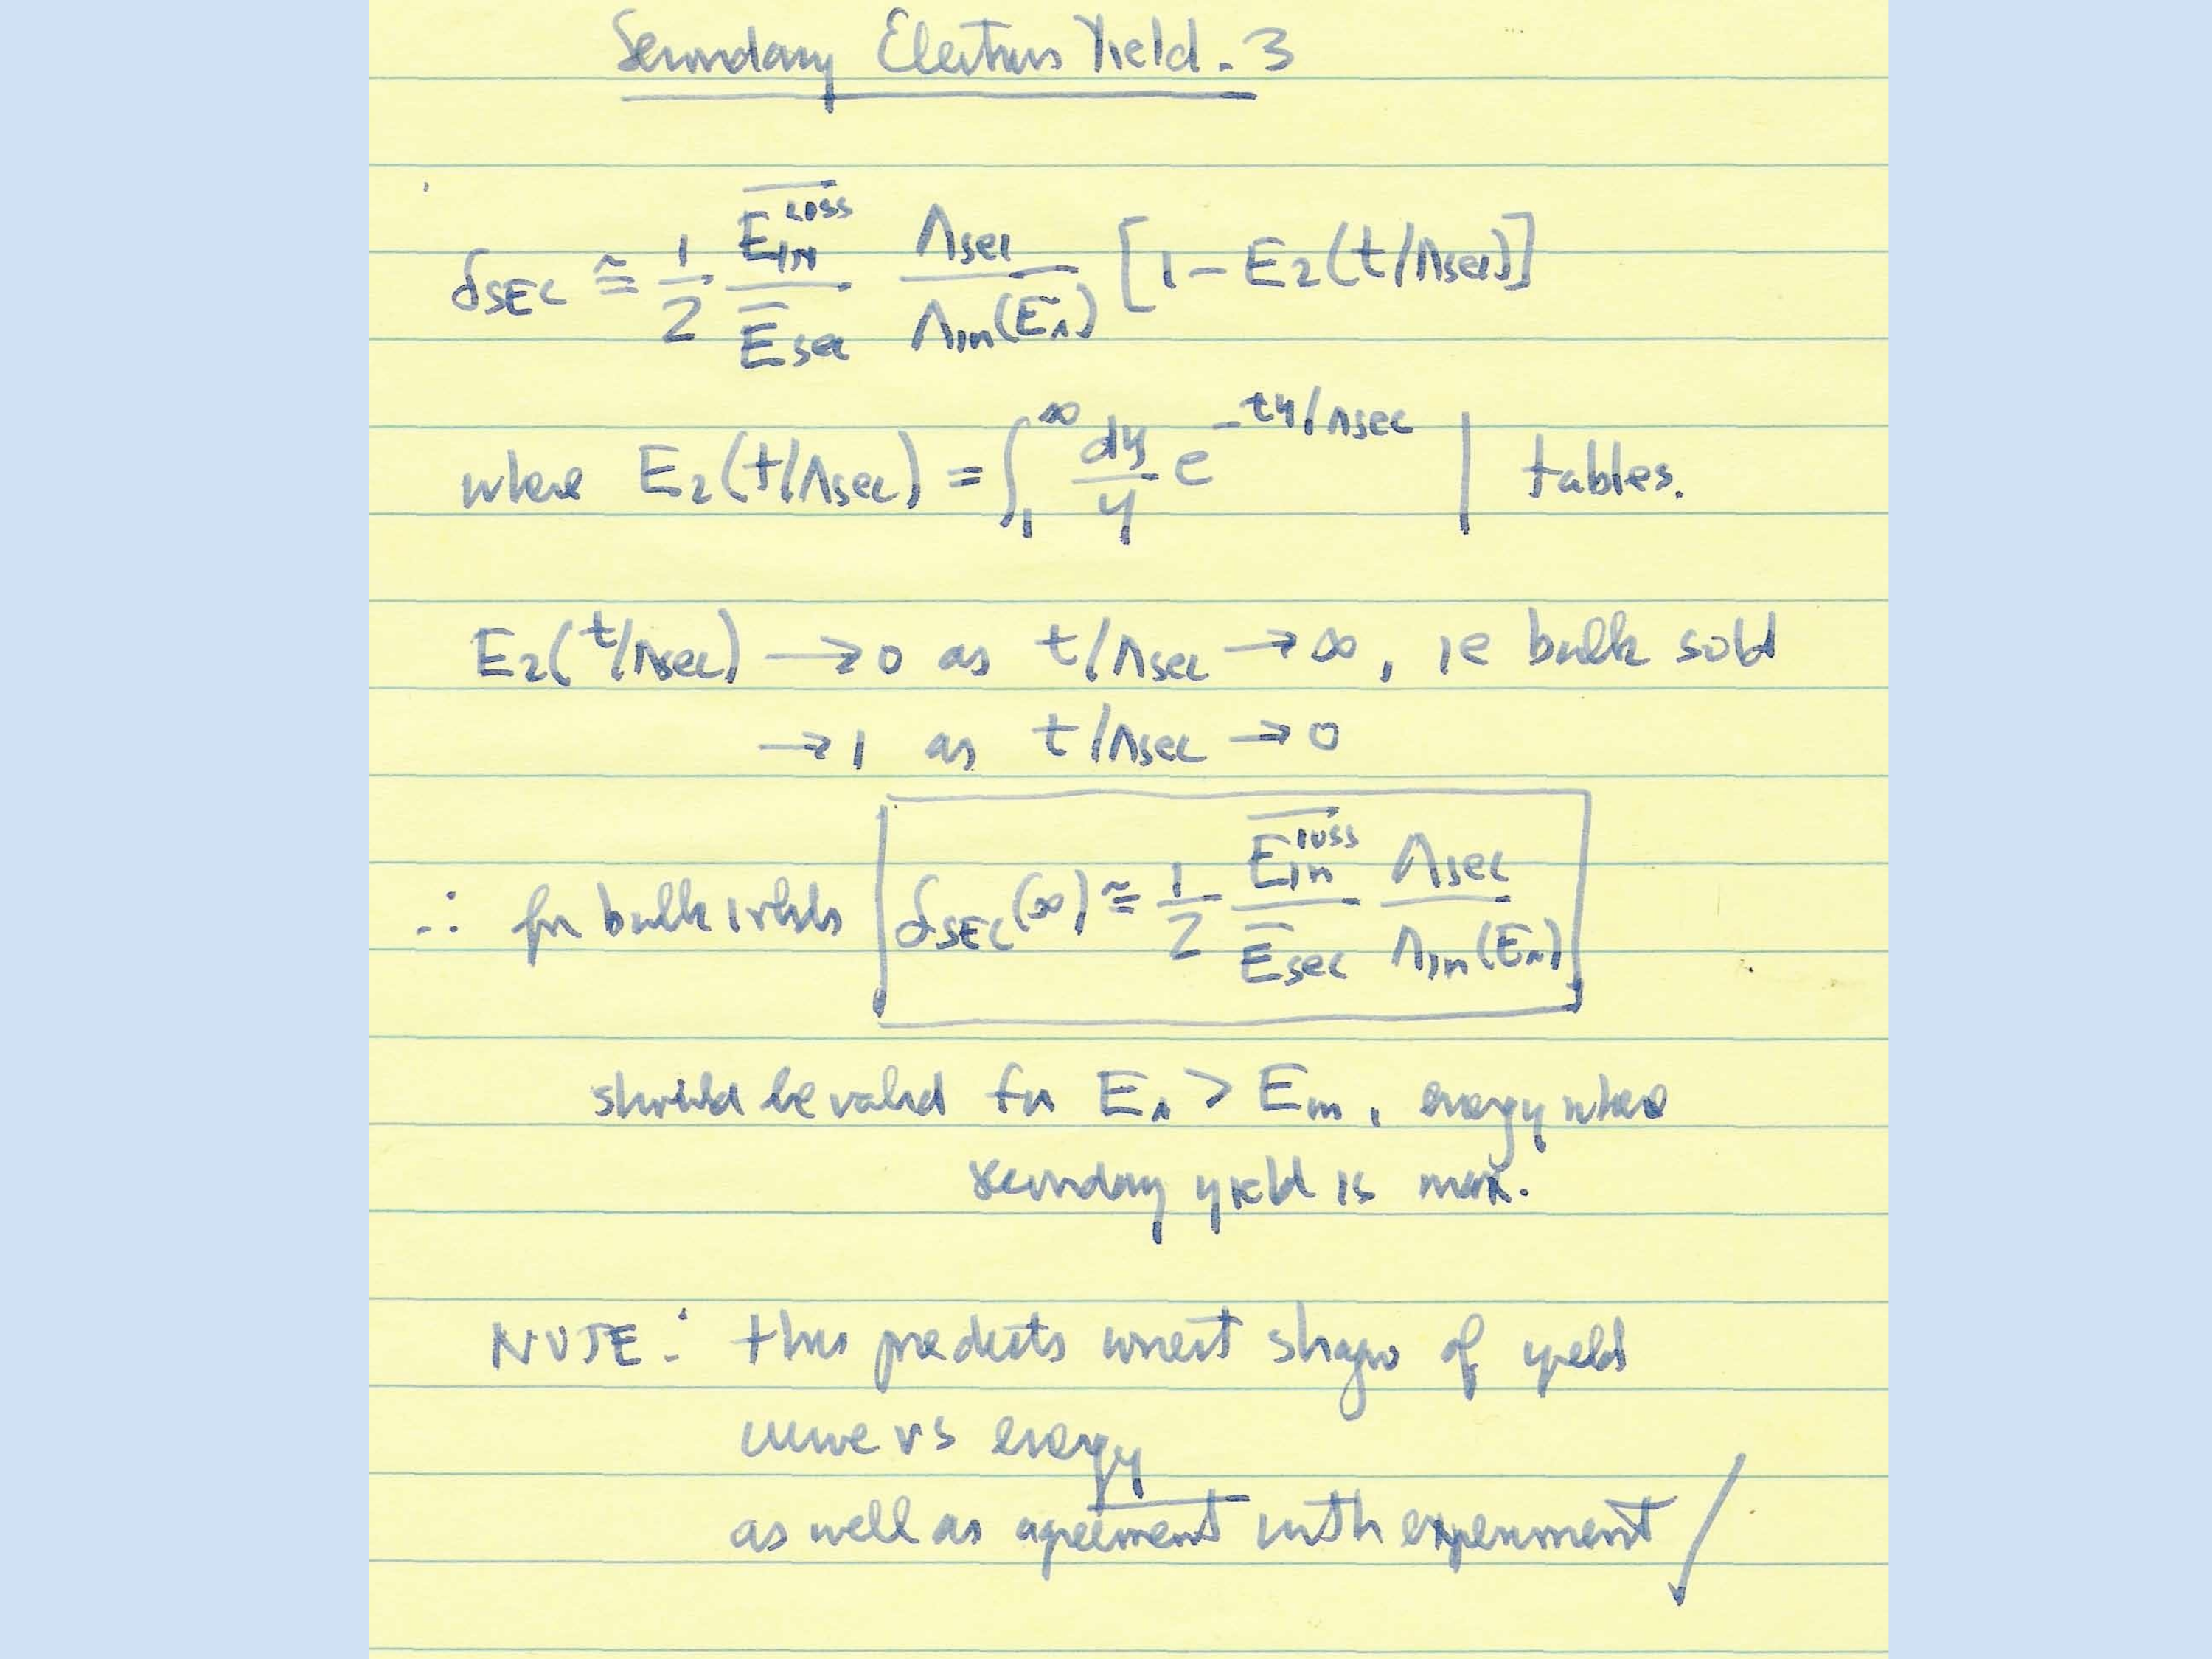 Secondary Electron Yield - 3
δSEC ≅ 1/2 E̅in^LOSS/E̅sec Λsec/Λin(En) [1 - E2(t/Λsec)]
where E2(t/Λsec) = ∫1^∞ dy/y e^-ty/Λsec | tables.
E2(t/Λsec) → 0 as t/Λsec → ∞, ie bulk solid
→ 1 as t/Λsec → 0
∴ for bulk solids δSEC(∞) ≅ 1/2 E̅in^loss/E̅sec Λsec/Λin(En)
should be valid for En > Em, energy where
secondary yield is max.
NOTE: this predicts correct shape of yield
curve vs energy
as well as agreement with experiment ✓